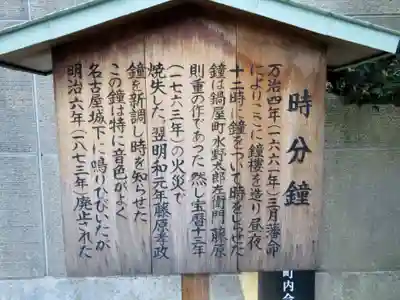 時分鐘
万治四年(一六六一年)三月藩命
によりここに鐘楼を造り昼夜
十二時に鐘をついて時をしらせた
鐘は鍋屋町水野太郎左衛門藤原
則重の作であった 然し宝暦十三年
(一七六三年)の火災で
焼失した 翌明和元年藤原孝政
鐘を新調し時を知らせた
この鐘は特に音色がよく
名古屋城下に鳴りひびいたが
明治六年(一八七三年)廃止された
町内会